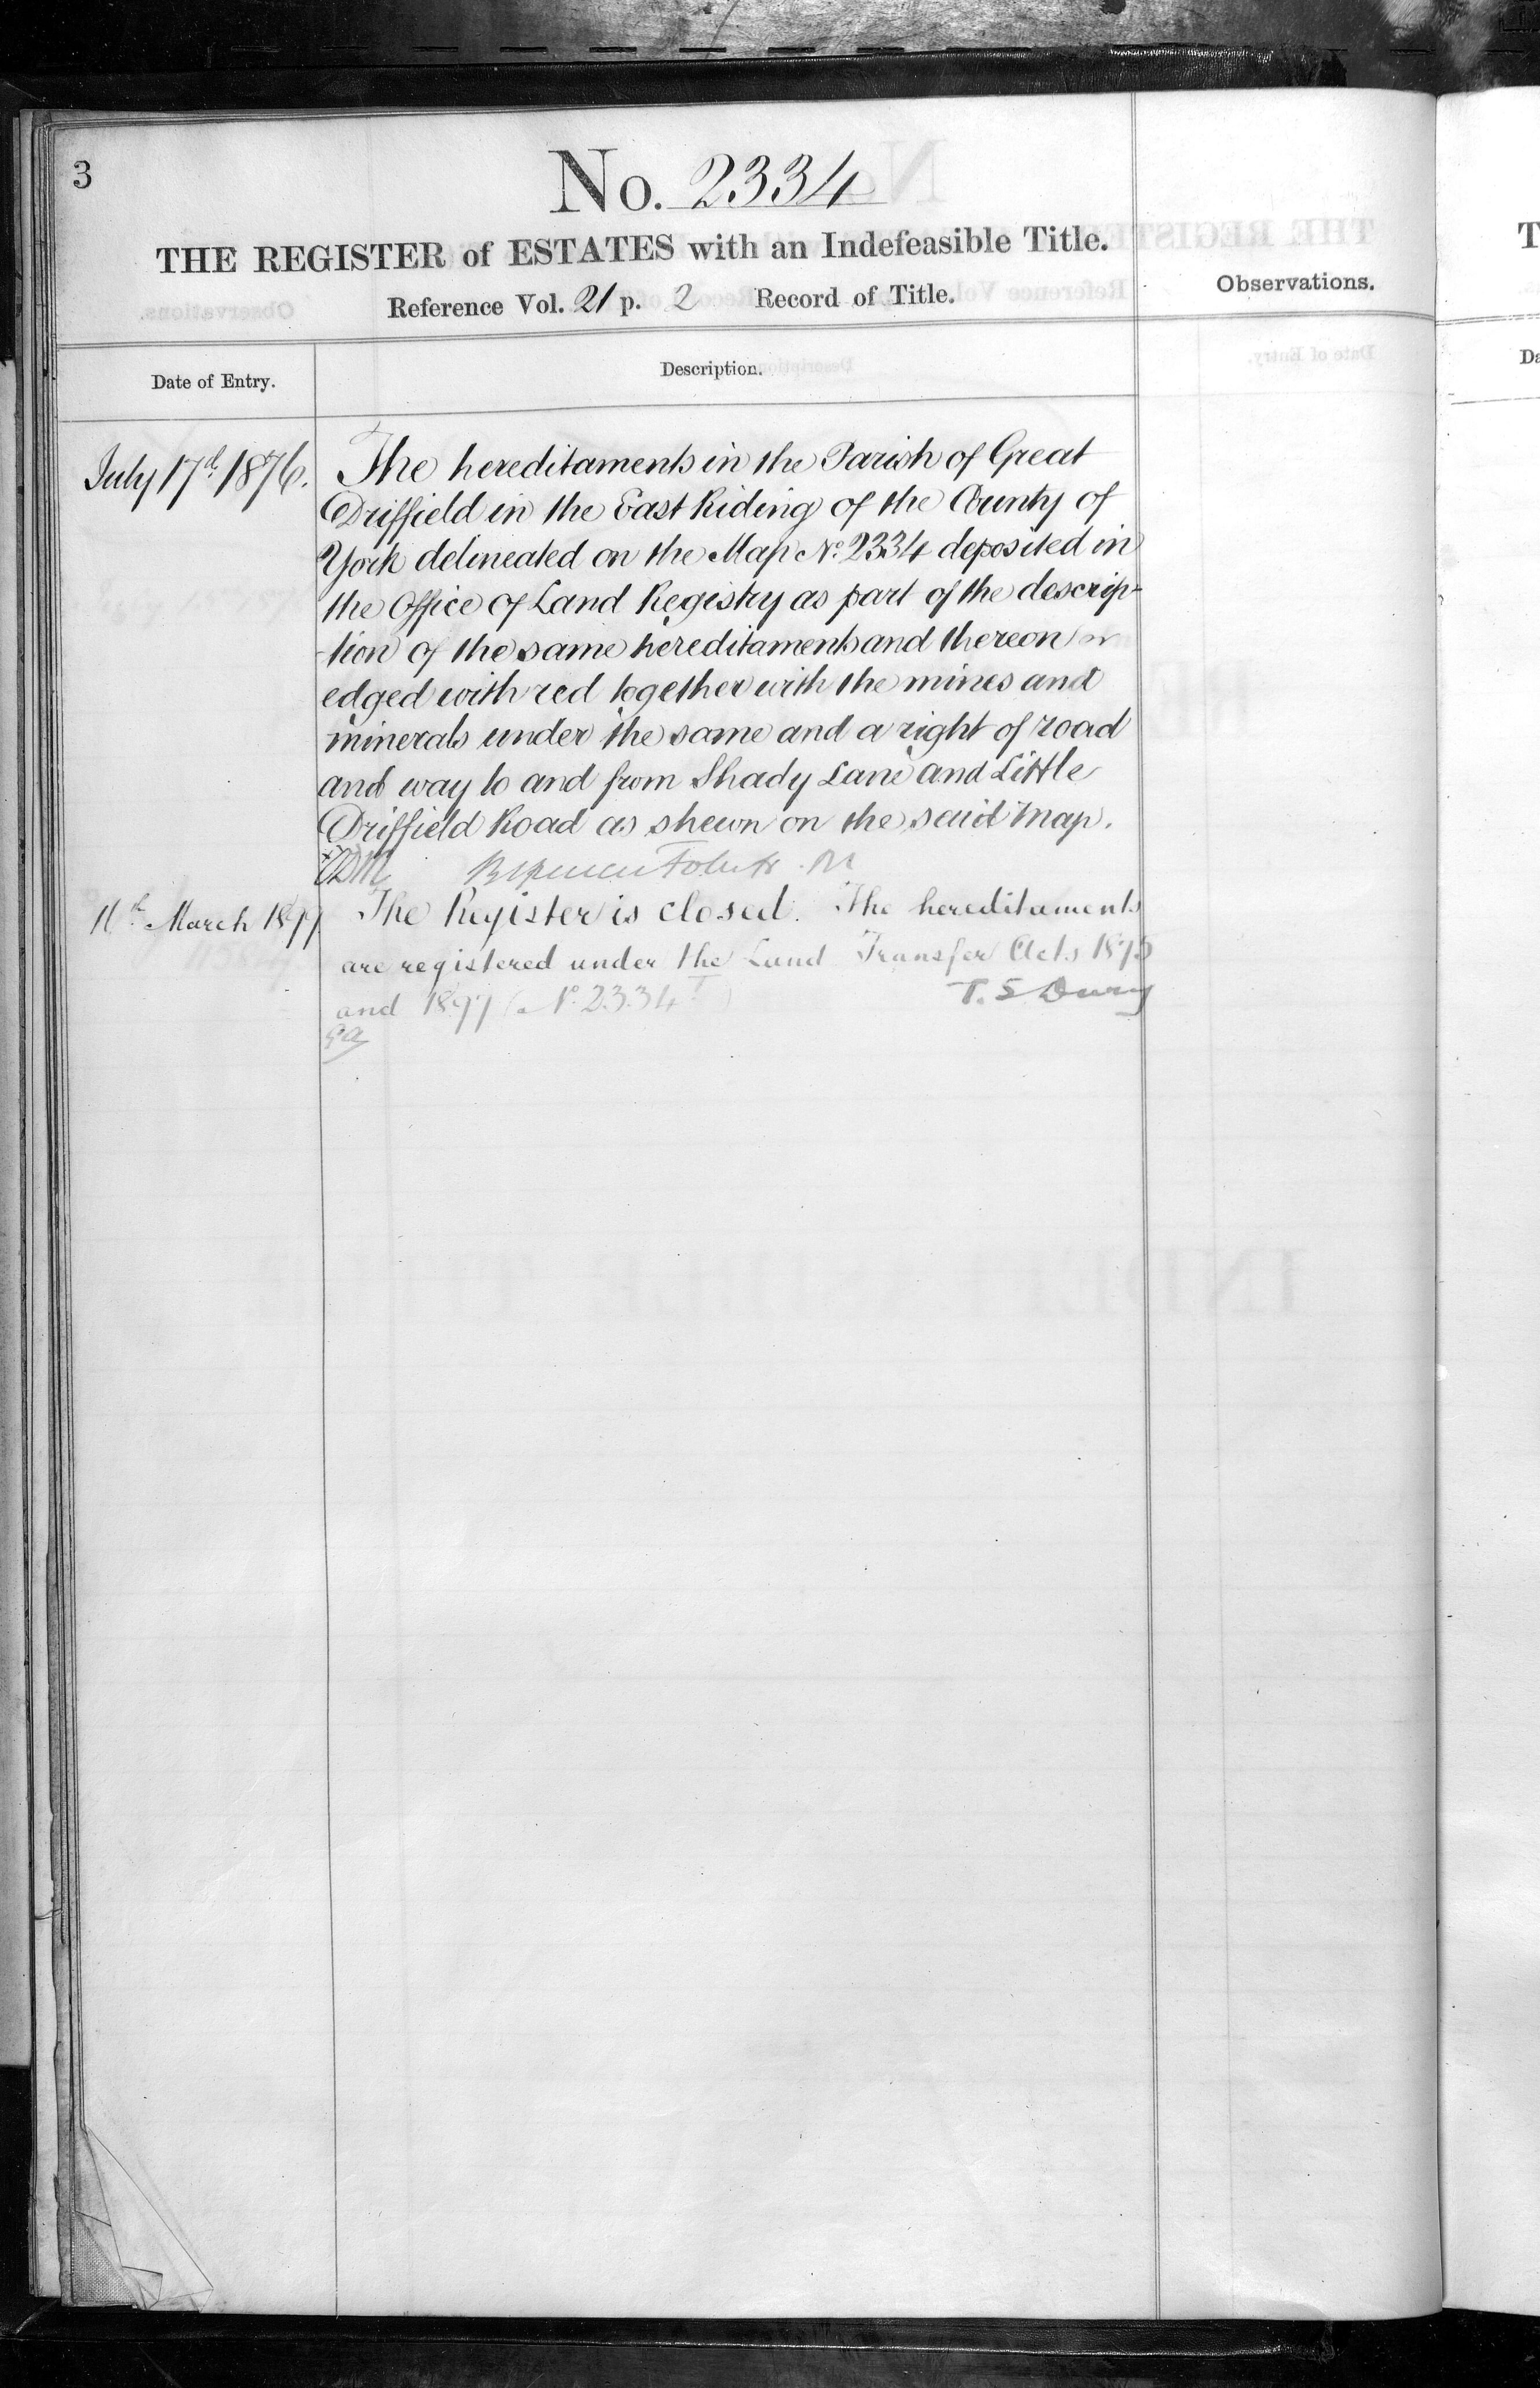 3
No. 2334
THE REGISTER of ESTATES with an Indefeasible Title.
Reference Vol. 21 p. 2 Record of Title.
Observations.
Date of Entry.
Description.
July 17th 1876.
The hereditaments in the Parish of Great
Driffield in the East Riding of the County of
York delineated on the Map No. 2334 deposited in
the Office of Land Registry as part of the descrip-
-tion of the same hereditaments and thereon
edged with red together with the mines and
minerals under the same and a right of road
and way to and from Shady Lane and Little
Driffield Road as shewn on the said Map.
March
The Register is closed. The hereditaments
are registered under the Land Transfer Acts 1875
and 1897 (No. 2334)